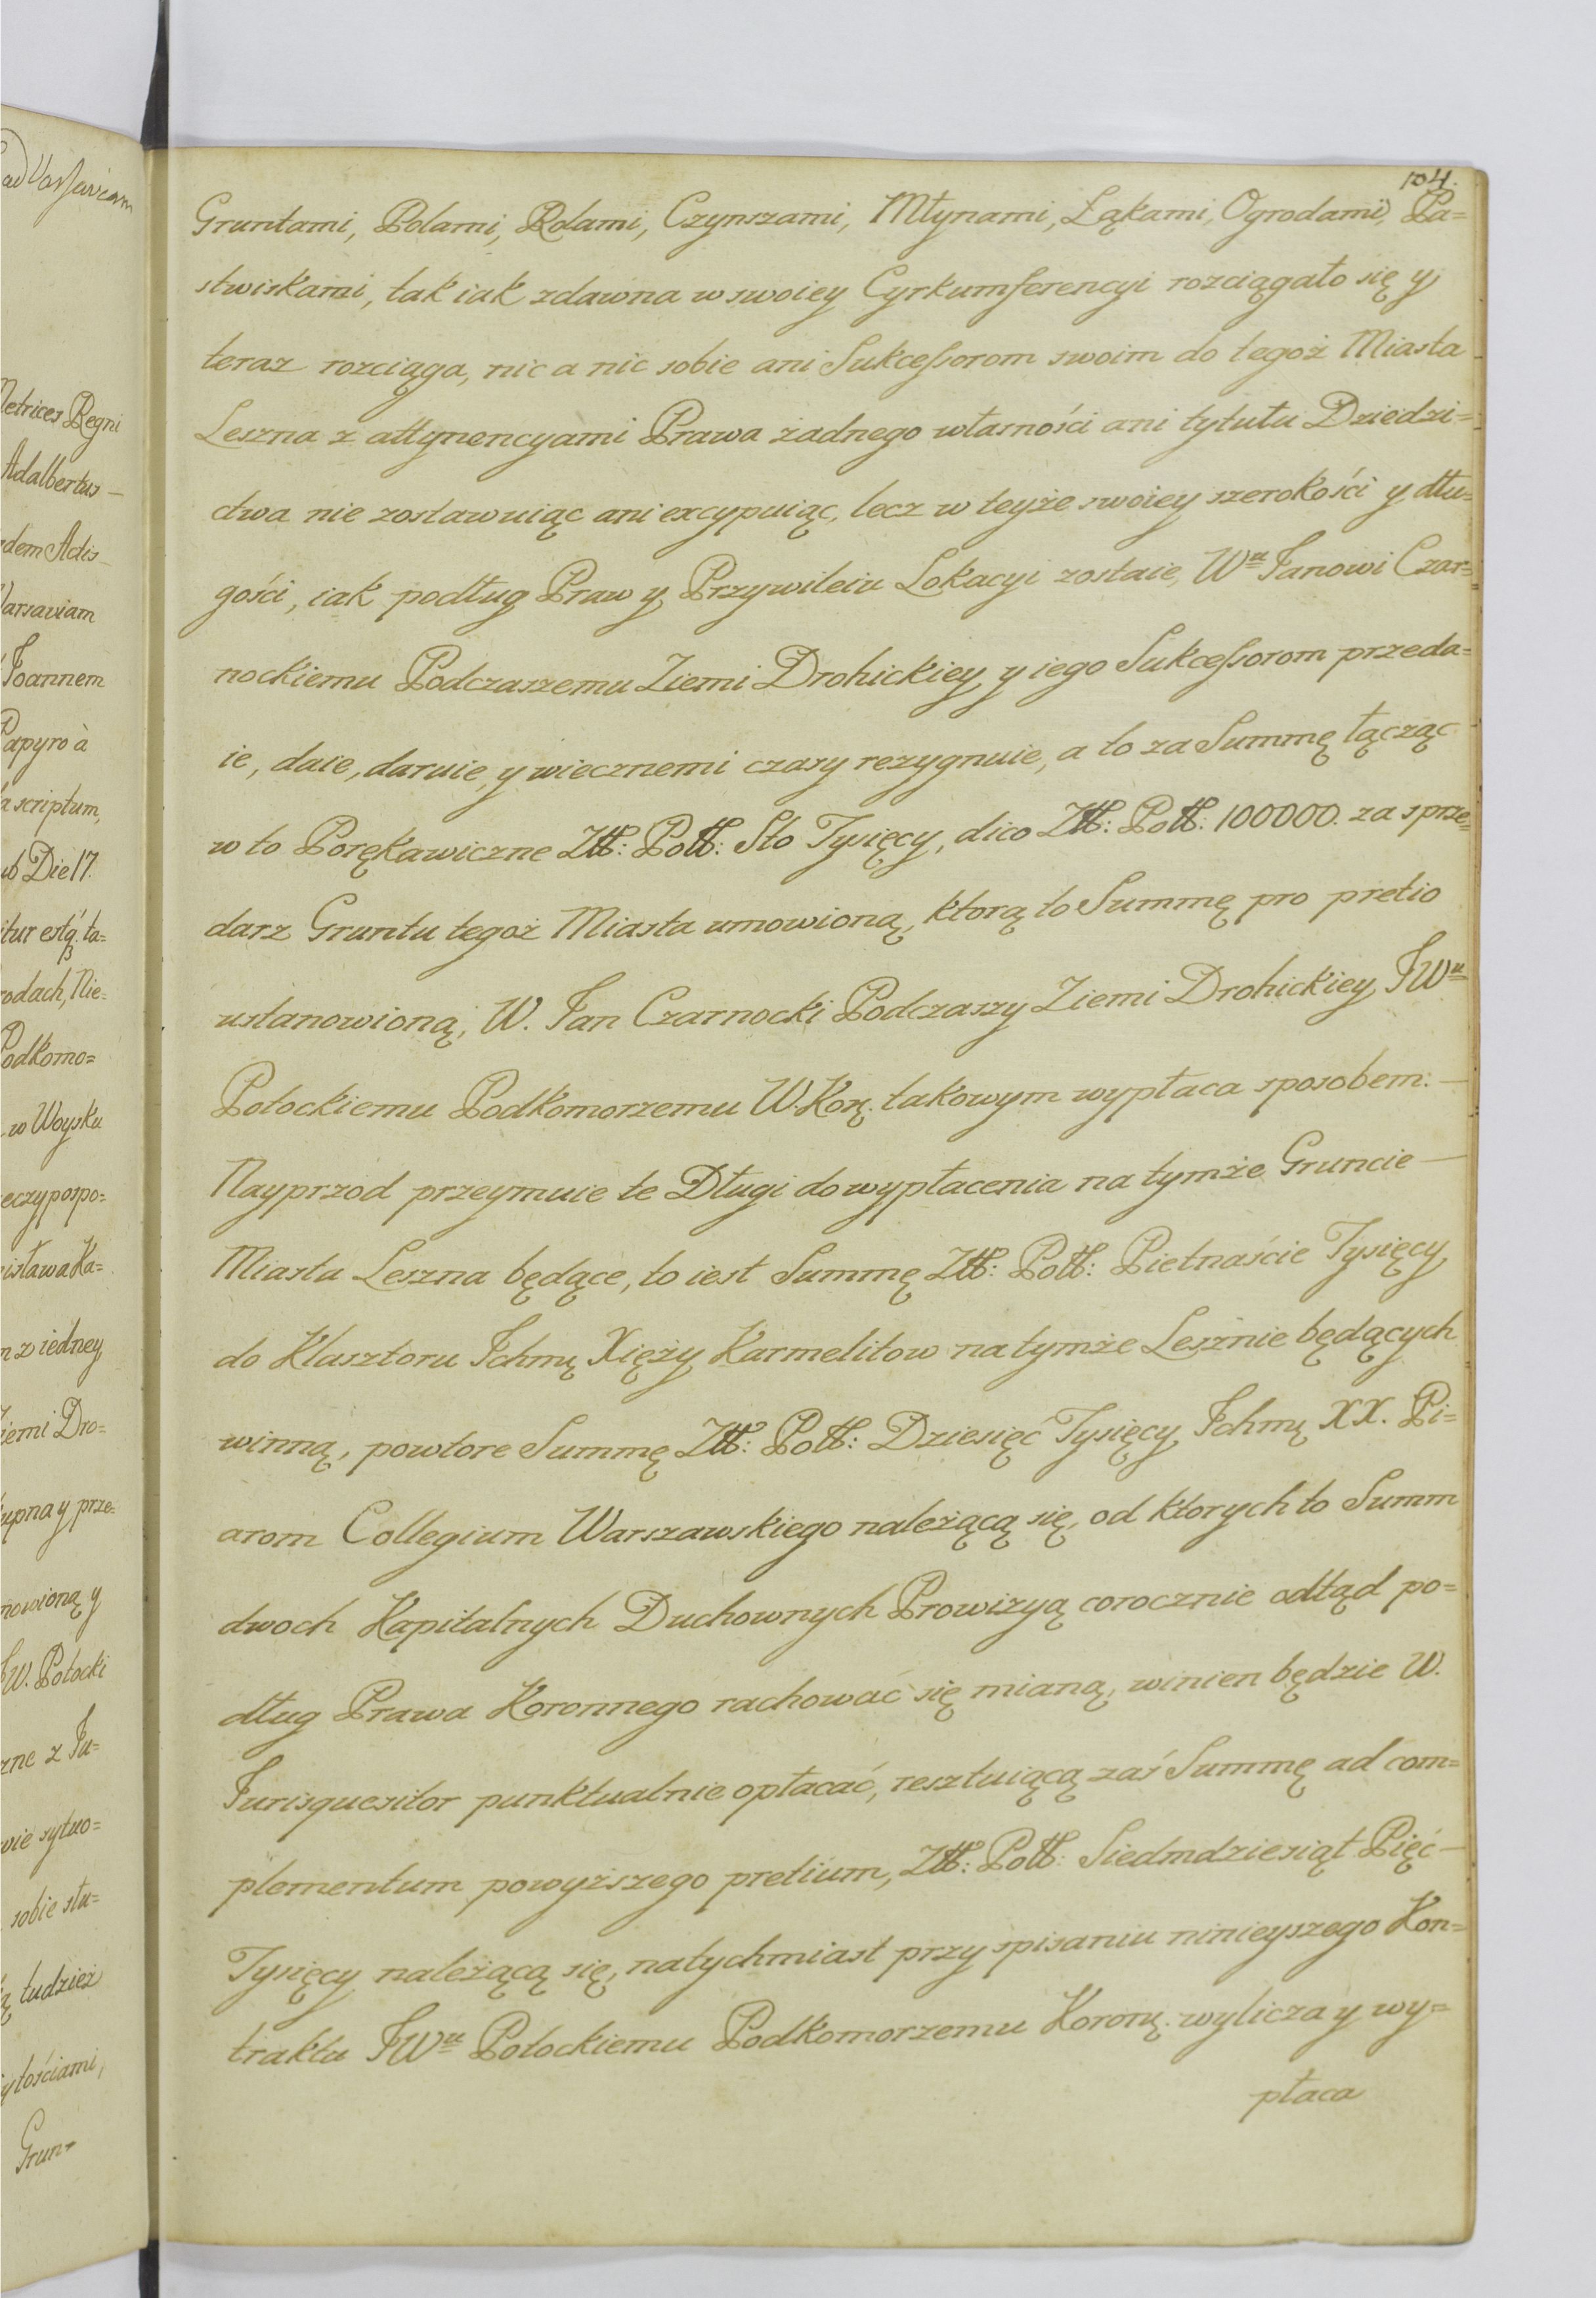 ad Varsaviam
Metrices Regni
Adalbertus —
dem Actis
Varsaviam
Joannem
Papyro à
scriptum,
ub Die 17.
itur estq́ ta=
rodach, Nie=
Podkomo=
w Woysku
eczypospo=
isława Ka=
z iedney
Ziemi Dro=
kupna y prze=
mowioną y
JW. Potocki
zne z Ju=
wie sytuo=
sobie słu=
tudzież
yłościami,
Grun=
104.
Gruntami, Polami, Rolami, Czynszami, Młynami, Łąkami, Ogrodami, Pa=
stwiskami, tak iak zdawna w swoiey Cyrkumferencyi rozciągało się y
teraz rozciąga, nic a nic sobie ani Sukcessorom swoim do tegoż Miasta
Leszna z attynencyami Prawa żadnego własności ani tytułu Dziedzi=
ctwa nie zostawuiąc ani excypuiąc, lecz w teyże swoiey szerokości y dłu=
gości, iak podług Praw y Przywileiu Lokacyi zostaie, Wu Janowi Czar=
nockiemu Podczaszemu Ziemi Drohickiey y iego Sukcessorom przeda=
ie, daie, daruie, y wiecznemi czasy rezygnuie, a to za Summę łącząc
w to Porękawiczne Złł: Poll: Sto Tysięcy, dico Złł: Poll: 100000. za sprze=
darz Gruntu tegoż Miasta umowioną, ktorą to Summę pro pretio
ustanowioną, W. Jan Czarnocki Podczaszy Ziemi Drohickiey JWu
Potockiemu Podkomorzemu W. Kor. takowym wypłaca sposobem: —
Nayprzod przeymuie te Długi do wypłacenia na tymże Gruncie —
Miasta Leszna będące, to iest Summę Złł: Poll: Pietnaście Tysięcy
do Klasztoru Ichmę Xięży Karmelitow na tymże Lesznie będących
winną, powtore Summę Złł: Poll: Dziesięć Tysięcy Ichmę XX. Pi=
arom Collegium Warszawskiego należącą się, od ktorych to Summ
dwoch Kapitalnych Duchownych Prowizyą corocznie odtąd po=
dług Prawa Koronnego rachować się mianą, winien będzie W.
Jurisquesitor punktualnie opłacać, resztuiącą zaś Summę ad com=
plementum powyższego pretium, Złł: Poll: Siedmdziesiąt Pięć —
Tysięcy należącą się, natychmiast przy spisaniu ninieyszego Kon=
traktu JWu Potockiemu Podkomorzemu Koronę. wylicza y wy=
płaca